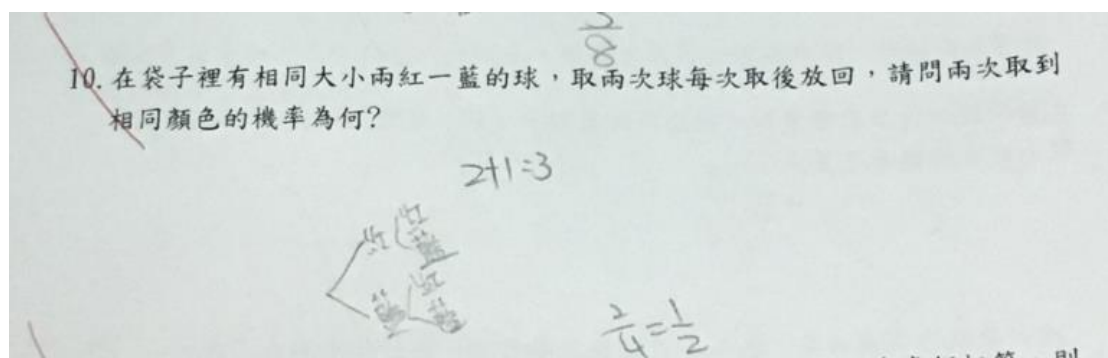 8
10. 在袋子裡有相同大小兩紅一藍的球，取兩次球每次取後放回，請問兩次取到
相同顏色的機率為何?
2+1=3
紅 紅
藍
藍 紅
藍
2/4=1/2